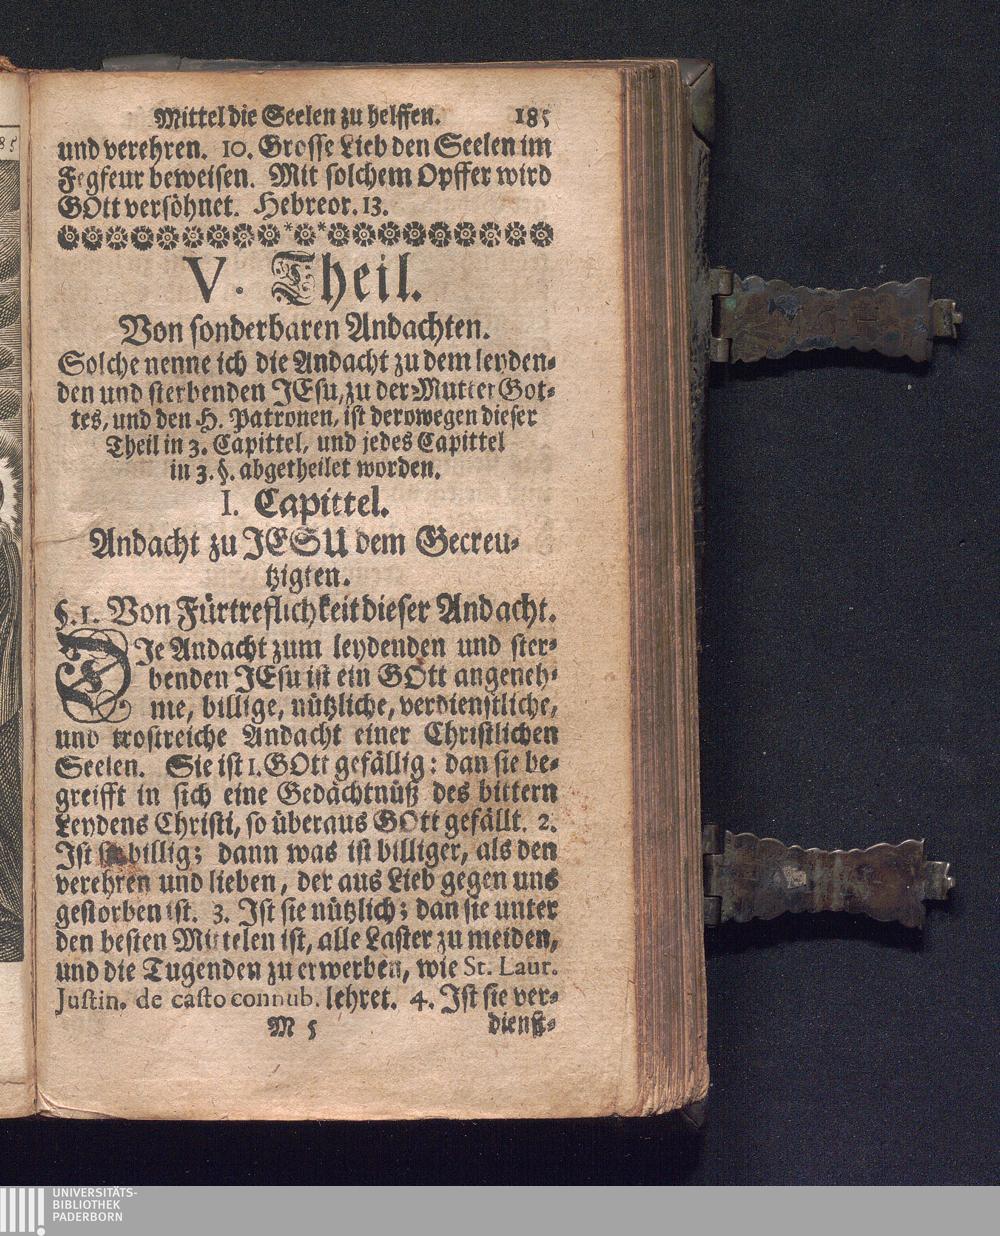 85
Mittel die Seelen zu helffen. 185
und verehren. 10. Grosse Lieb den Seelen im
Fegfeur beweisen. Mit solchem Opffer wird
GOtt versöhnet. Hebreor. 13.
V. Theil.
Von sonderbaren Andachten.
Solche nenne ich die Andacht zu dem leyden-
den und sterbenden JEsu, zu der Mutter Got-
tes, und den H. Patronen, ist derowegen dieser
Theil in 3. Capittel, und jedes Capittel
in 3. §. abgetheilet worden.
I. Capittel.
Andacht zu JESU dem Gecreu-
tzigten.
§. 1. Von Fürtreflichkeit dieser Andacht.
DIe Andacht zum leydenden und ster-
benden JEsu ist ein GOtt angeneh-
me, billige, nützliche, verdienstliche,
und trostreiche Andacht einer Christlichen
Seelen. Sie ist 1. GOtt gefällig: dan sie be-
greifft in sich eine Gedächtnüß des bittern
Leydens Christi, so überaus GOtt gefällt. 2.
Ist sie billig; dann was ist billiger, als den
verehren und lieben, der aus Lieb gegen uns
gestorben ist. 3. Ist sie nützlich; dan sie unter
den besten Mittelen ist, alle Laster zu meiden,
und die Tugenden zu erwerben, wie St. Laur.
Justin. de casto connub. lehret. 4. Ist sie ver-
M 5 dienst-
UNIVERSITÄTS-
BIBLIOTHEK
PADERBORN